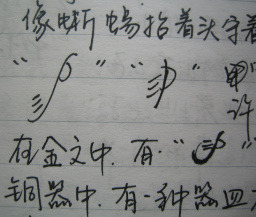 像蜥蜴抬着头守着
" " " " 甲
许
在金文中.有." "
铜器中.有一种器皿